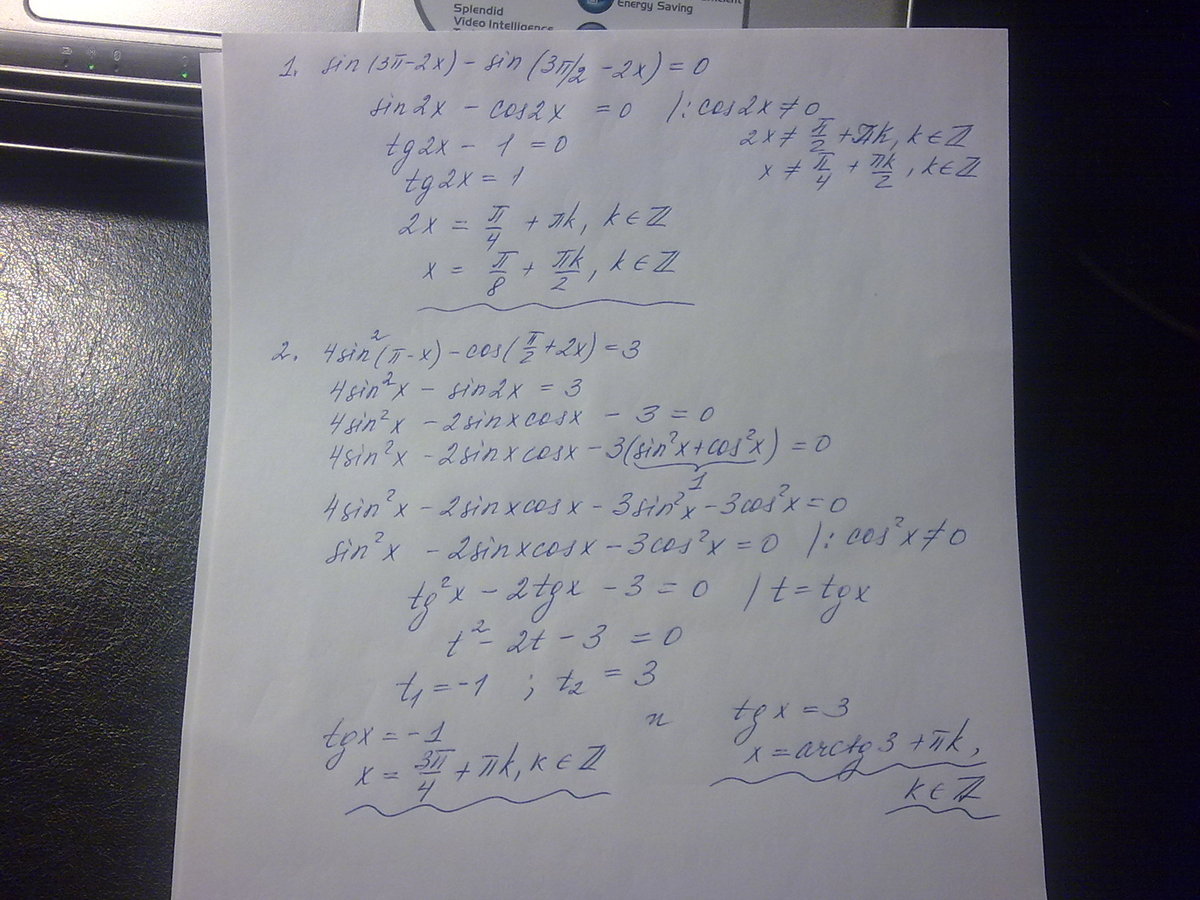 Splendid
Video Intelligence
Energy Saving
1. sin(3π-2x) - sin(3π/2 -2x) = 0
sin2x - cos2x = 0 /: cos2x ≠ 0
2x ≠ π/2 + πk, k ∈ ℤ
tg2x - 1 = 0
x ≠ π/4 + πk/2, k ∈ ℤ
tg2x = 1
2x = π/4 + πk, k ∈ ℤ
x = π/8 + πk/2, k ∈ ℤ
2. 4sin²(π-x) - cos(π/2 + 2x) = 3
4sin²x - sin2x = 3
4sin²x - 2sinxcosx - 3 = 0
4sin²x - 2sinxcosx - 3(sin²x+cos²x) = 0
1
4sin²x - 2sinxcosx - 3sin²x - 3cos²x = 0
sin²x - 2sinxcosx - 3cos²x = 0 /: cos²x ≠ 0
tg²x - 2tgx - 3 = 0 / t = tgx
t² - 2t - 3 = 0
t₁ = -1 ; t₂ = 3
tgx = -1 и tgx = 3
x = 3π/4 + πk, k ∈ ℤ x = arctg3 + πk,
k ∈ ℤ